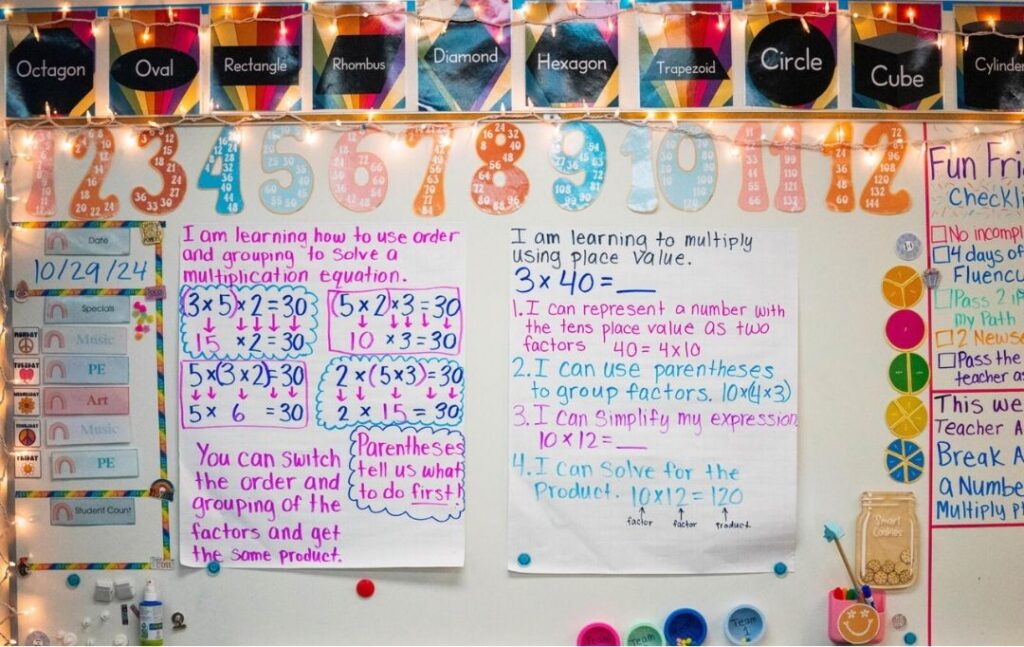 Octagon
Oval
Rectangle
Rhombus
Diamond
Hexagon
Trapezoid
Circle
Cube
Cylinder
1 2 3 4 5 6 7 8 9 10 11 12
Date
10/29/24
Specials
MONDAY Music
TUESDAY PE
WEDNESDAY Art
THURSDAY Music
FRIDAY PE
Student Count
I am learning how to use order
and grouping to solve a
multiplication equation.
(3×5)×2=30
15 ×2=30
(5×2)×3=30
10 ×3=30
5×(3×2)=30
5× 6 =30
2×(5×3)=30
2 × 15 = 30
You can switch
the order and
grouping of the
factors and get
the same product.
Parentheses
tell us what
to do first!
I am learning to multiply
using place value.
3×40=__
1. I can represent a number with
the tens place value as two
factors 40 = 4×10
2. I can use parentheses
to group factors. 10×(4×3)
3. I can simplify my expression
10×12=__
4. I can solve for the
Product. 10×12=120
factor factor product
Fun Fri
Checkli
No incompl
4 days of
Fluenc
Pass 2
my Path
2 Newse
Pass the
teacher as
This we
Teacher A
Break A
a Numbe
Multiply
Smart
Cookies
Team
Team
1